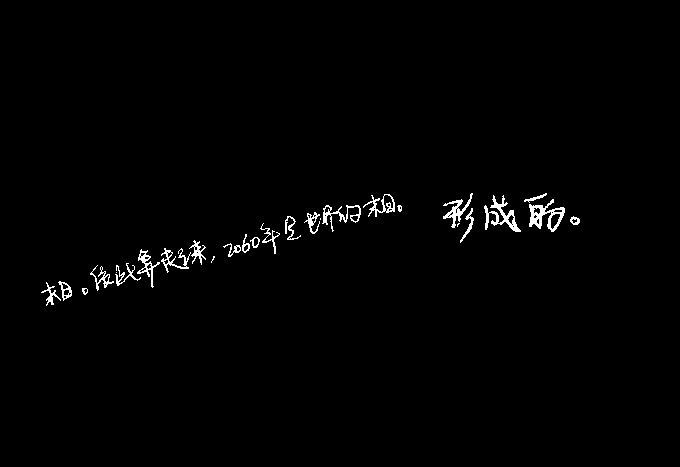 末日。依此算起来,2060年是世界的末日。
形成的。